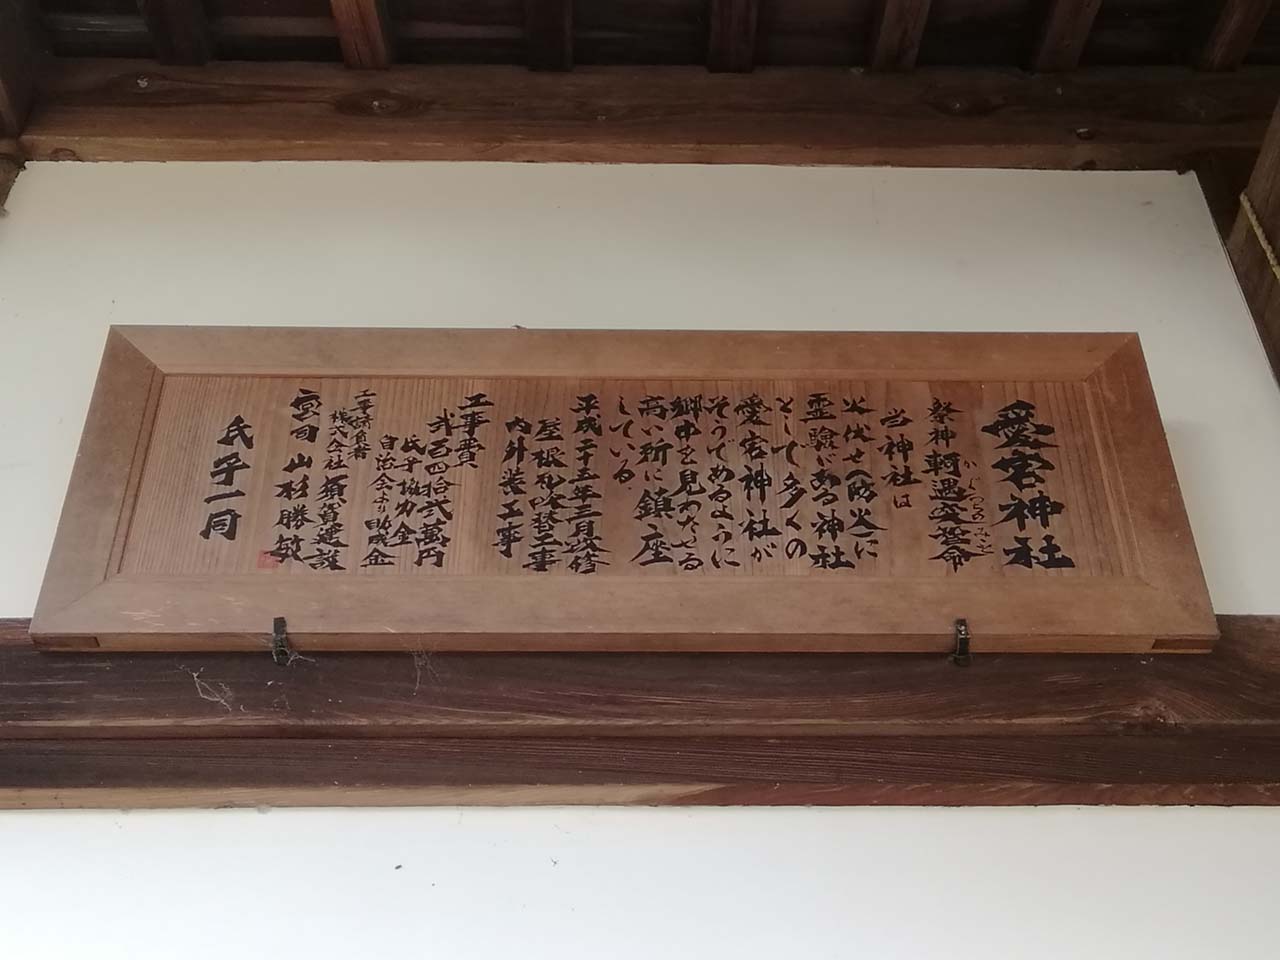 愛宕神社
祭神 軻遇突智命
かぐつちのみこと
当神社は
火伏せ(防火)に
霊験ある神社
として多くの
愛宕神社が
そうであるように
郷中を見わたせる
高い所に鎮座
している
平成二十五年三月改修
屋根瓦吹替工事
内外装工事
工事費
弐百四拾弐萬円
氏子協力金
自治会より助成金
工事請負者
株式会社 須賀建設
宮司 山杉勝敏
氏子一同